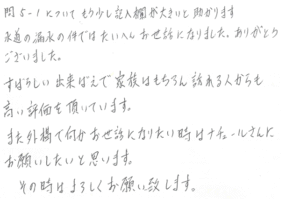 問5-1について もう少し記入欄が大きいと助かります
水道の漏水の件ではたいへんお世話になりました。ありがとう
ございました。
すばらしい出来ばえで家族はもちろん訪れる人からも
高い評価を頂いています。
また外構で何かお世話になりたい時はナチュールさんに
お願いしたいと思います。
その時はよろしくお願い致します。